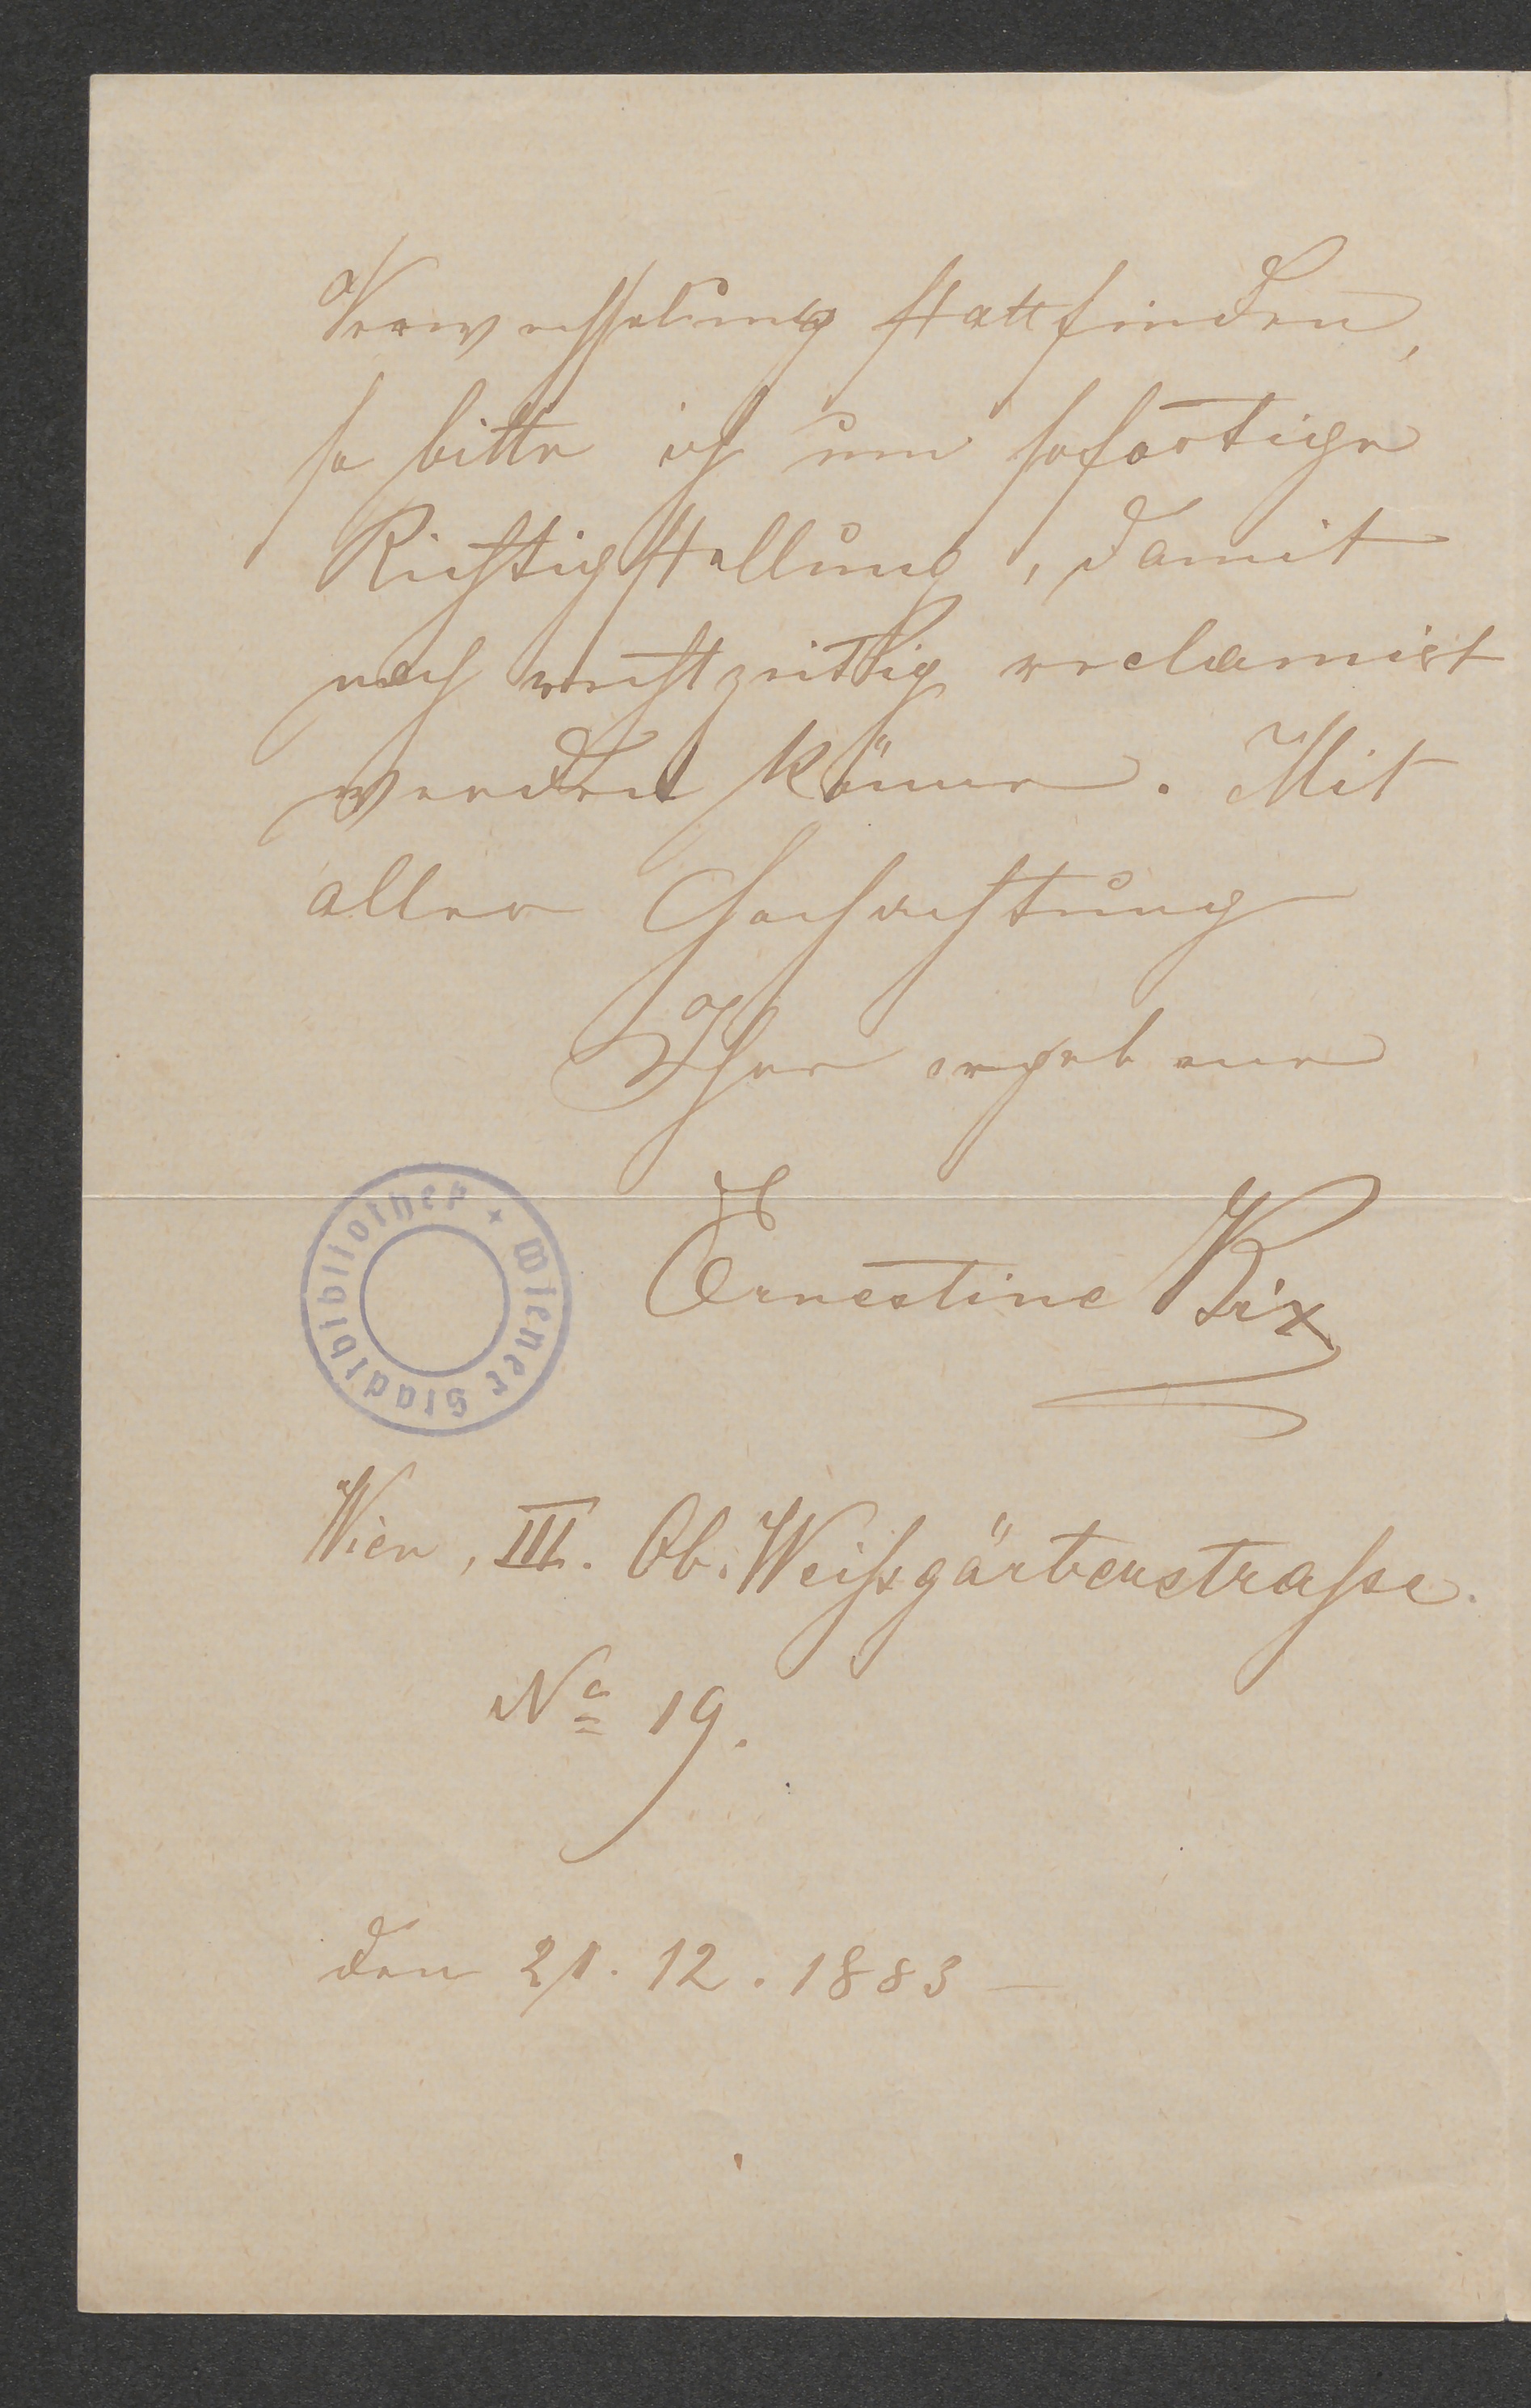 Verwechselung stattfinden,
so bitte ich um sofortige
Richtigstellung, damit
noch rechtzeitig reclamirt
werden könne. Mit
aller Hochachtung
Ihre ergebene
Ernestine Kix
Wiener Stadtbibliothek
Wien, III. Ob. Weißgärberstraße.
No 19.
den 21. 12. 1883 —